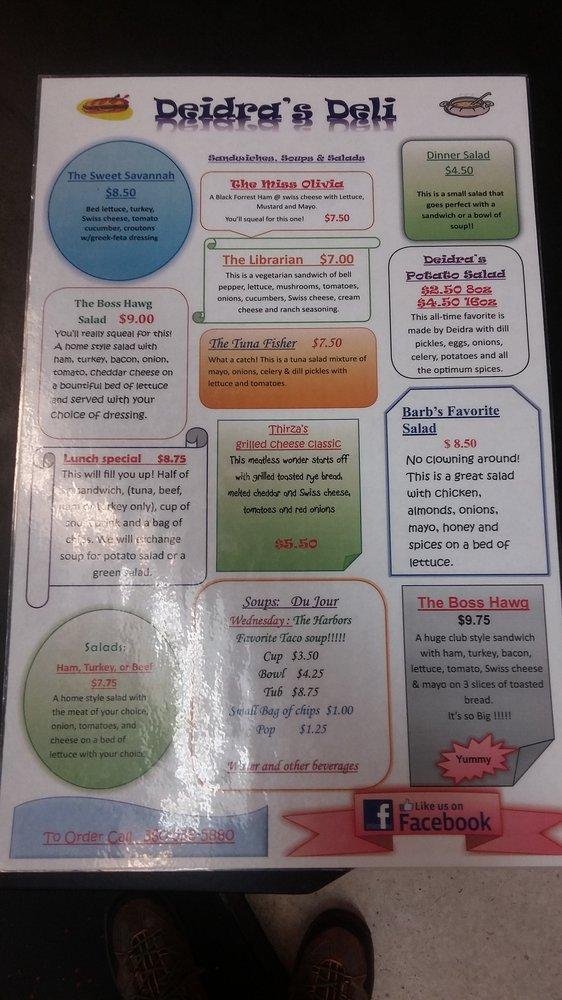 Deidra's Deli
Sandwiches, Soups & Salads
The Sweet Savannah
$8.50
Bed lettuce, turkey,
Swiss cheese, tomato
cucumber, croutons
w/greek-feta dressing
The Miss Olivia
A Black Forrest Ham @ swiss cheese with Lettuce,
Mustard and Mayo.
You'll squeal for this one! $7.50
Dinner Salad
$4.50
This is a small salad that
goes perfect with a
sandwich or a bowl of
soup!!
The Librarian $7.00
This is a vegetarian sandwich of bell
pepper, lettuce, mushrooms, tomatoes,
onions, cucumbers, Swiss cheese, cream
cheese and ranch seasoning.
Deidra's
Potato Salad
$2.50 8oz
$4.50 16oz
This all-time favorite is
made by Deidra with dill
pickles, eggs, onions,
celery, potatoes and all
the optimum spices.
The Boss Hawg
Salad $9.00
You'll really squeal for this!
A home style salad with
ham, turkey, bacon, onion,
tomato, cheddar cheese on
a bountiful bed of lettuce
and served with your
choice of dressing.
The Tuna Fisher $7.50
What a catch! This is a tuna salad mixture of
mayo, onions, celery & dill pickles with
lettuce and tomatoes.
Barb's Favorite
Salad
$ 8.50
No clowning around!
This is a great salad
with chicken,
almonds, onions,
mayo, honey and
spices on a bed of
lettuce.
Thirza's
grilled cheese classic
This meatless wonder starts off
with grilled toasted rye bread,
melted cheddar and Swiss cheese,
tomatoes and red onions
$5.50
Lunch special $8.75
This will fill you up! Half of
sandwich, (tuna, beef,
ham or turkey only), cup of
soup, drink and a bag of
chips. We will exchange
soup for potato salad or a
green salad.
Soups: Du Jour
Wednesday: The Harbors
Favorite Taco soup!!!!!
Cup $3.50
Bowl $4.25
Tub $8.75
Small Bag of chips $1.00
Pop $1.25
Water and other beverages
The Boss Hawg
$9.75
A huge club style sandwich
with ham, turkey, bacon,
lettuce, tomato, Swiss cheese
& mayo on 3 slices of toasted
bread.
It's so Big !!!!!
Yummy
Salads:
Ham, Turkey, or Beef
$7.75
A home style salad with
the meat of your choice,
onion, tomatoes, and
cheese on a bed of
lettuce with your choice
To Order Call
Like us on
Facebook